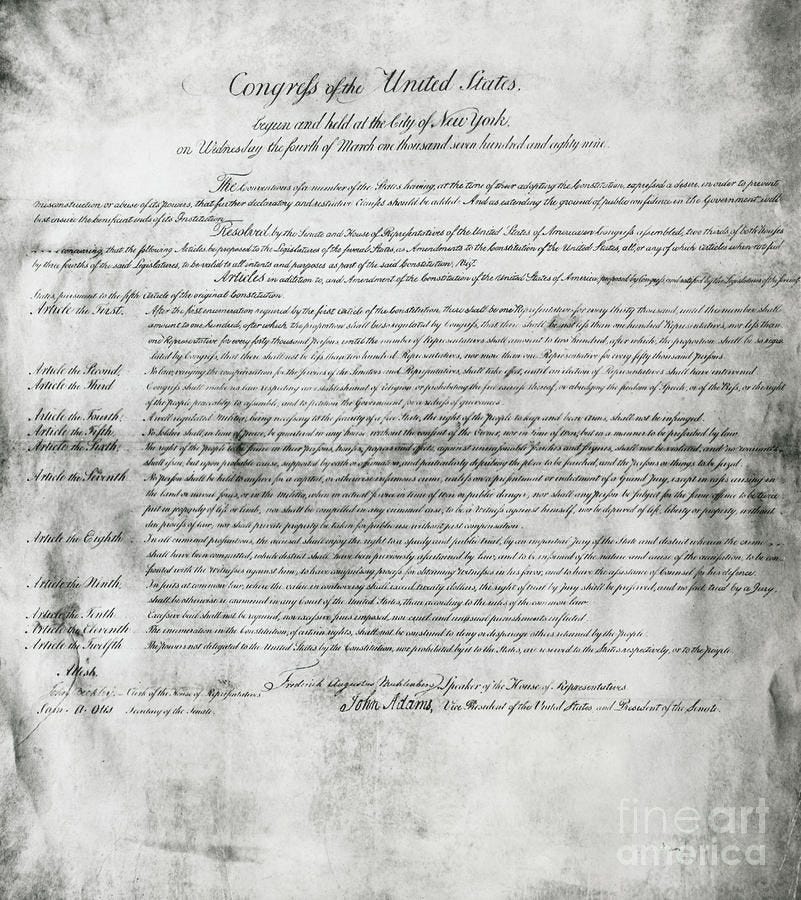 Congress of the United States.
begun and held at the City of New York.
on Wednesday the fourth of March one thousand seven hundred and eighty nine.
The Conventions of a number of the States having, at the time of their adopting the Constitution, expressed a desire, in order to prevent
misconstruction or abuse of its powers, that further declaratory and restrictive clauses should be added: And as extending the ground of public confidence in the Government will
best ensure the beneficent ends of its Institution
Resolved by the Senate and House of Representatives of the United States of America in Congress assembled, two thirds of both Houses
concurring, that the following Articles be proposed to the Legislatures of the several States, as Amendments to the Constitution of the United States, all, or any of which articles when ratified
by three fourths of the said Legislatures, to be valid to all intents and purposes as part of the said Constitution; Vizt.
Articles in addition to, and Amendment of the Constitution of the United States of America, proposed by Congress, and ratified by the Legislatures of the several
States, pursuant to the fifth Article of the original Constitution.
Article the First. After the first enumeration required by the first Article of the Constitution, there shall be one Representative for every thirty thousand, until the number shall
amount to one hundred, after which, the proportion shall be so regulated by Congress, that there shall be not less than one hundred Representatives, nor less than
one Representative for every forty thousand Persons, until the number of Representatives shall amount to two hundred, after which, the proportion shall be so regu-
lated by Congress, that there shall not be less than two hundred Representatives, nor more than one Representative for every fifty thousand Persons.
Article the Second. No law, varying the compensation for the services of the Senators and Representatives, shall take effect, until an election of Representatives shall have intervened.
Article the Third Congress shall make no law respecting an establishment of Religion, or prohibiting the free exercise thereof, or abridging the freedom of Speech, or of the Press, or the right
of the People peaceably to assemble, and to petition the Government for a redress of grievances
Article the Fourth. A well regulated Militia, being necessary to the security of a free State, the right of the People to keep and bear arms, shall not be infringed.
Article the Fifth. No Soldier shall, in time of peace, be quartered in any house without the consent of the Owner, nor in time of war, but in a manner to be prescribed by law.
Article the Sixth. The right of the People to be secure in their Persons, houses, papers and effects, against unreasonable searches and seizures, shall not be violated, and no warrants
shall issue, but upon probable cause, supported by oath or affirmation, and particularly describing the place to be searched, and the Persons or things to be seized.
Article the Seventh No Person shall be held to answer for a capital, or otherwise infamous crime, unless on a presentment or indictment of a Grand Jury, except in cases arising in
the land or naval forces, or in the Militia, when in actual service in time of war or public danger, nor shall any Person be subject for the same offence to be twice
put in jeopardy of life or limb, nor shall be compelled in any criminal case, to be a witness against himself, nor be deprived of life, liberty or property, without
due process of law, nor shall private property be taken for public use without just compensation.
Article the Eighth In all criminal prosecutions, the accused shall enjoy the right to a speedy and public trial, by an impartial Jury of the State and district wherein the crime
shall have been committed, which district shall have been previously ascertained by law, and to be informed of the nature and cause of the accusation, to be con-
fronted with the witnesses against him, to have compulsory process for obtaining witnesses in his favor, and to have the assistance of Counsel for his defence.
Article the Ninth. In suits at common law, where the value in controversy shall exceed twenty dollars, the right of trial by Jury shall be preserved, and no fact, tried by a Jury
shall be otherwise re examined in any Court of the United States, than according to the rules of the common law.
Article the Tenth Excessive bail shall not be required, nor excessive fines imposed, nor cruel and unusual punishments inflicted.
Article the Eleventh The enumeration in the Constitution, of certain rights, shall not be construed to deny or disparage others retained by the People.
Article the Twelfth The Powers not delegated to the United States by the Constitution, nor prohibited by it to the States, are reserved to the States respectively, or to the people.
Attest.
Frederick Augustus Muhlenberg Speaker of the House of Representatives
John Beckley, Clerk of the House of Representatives
John Adams, Vice President of the United States and President of the Senate.
Sam. A. Otis Secretary of the Senate.
fine art
america